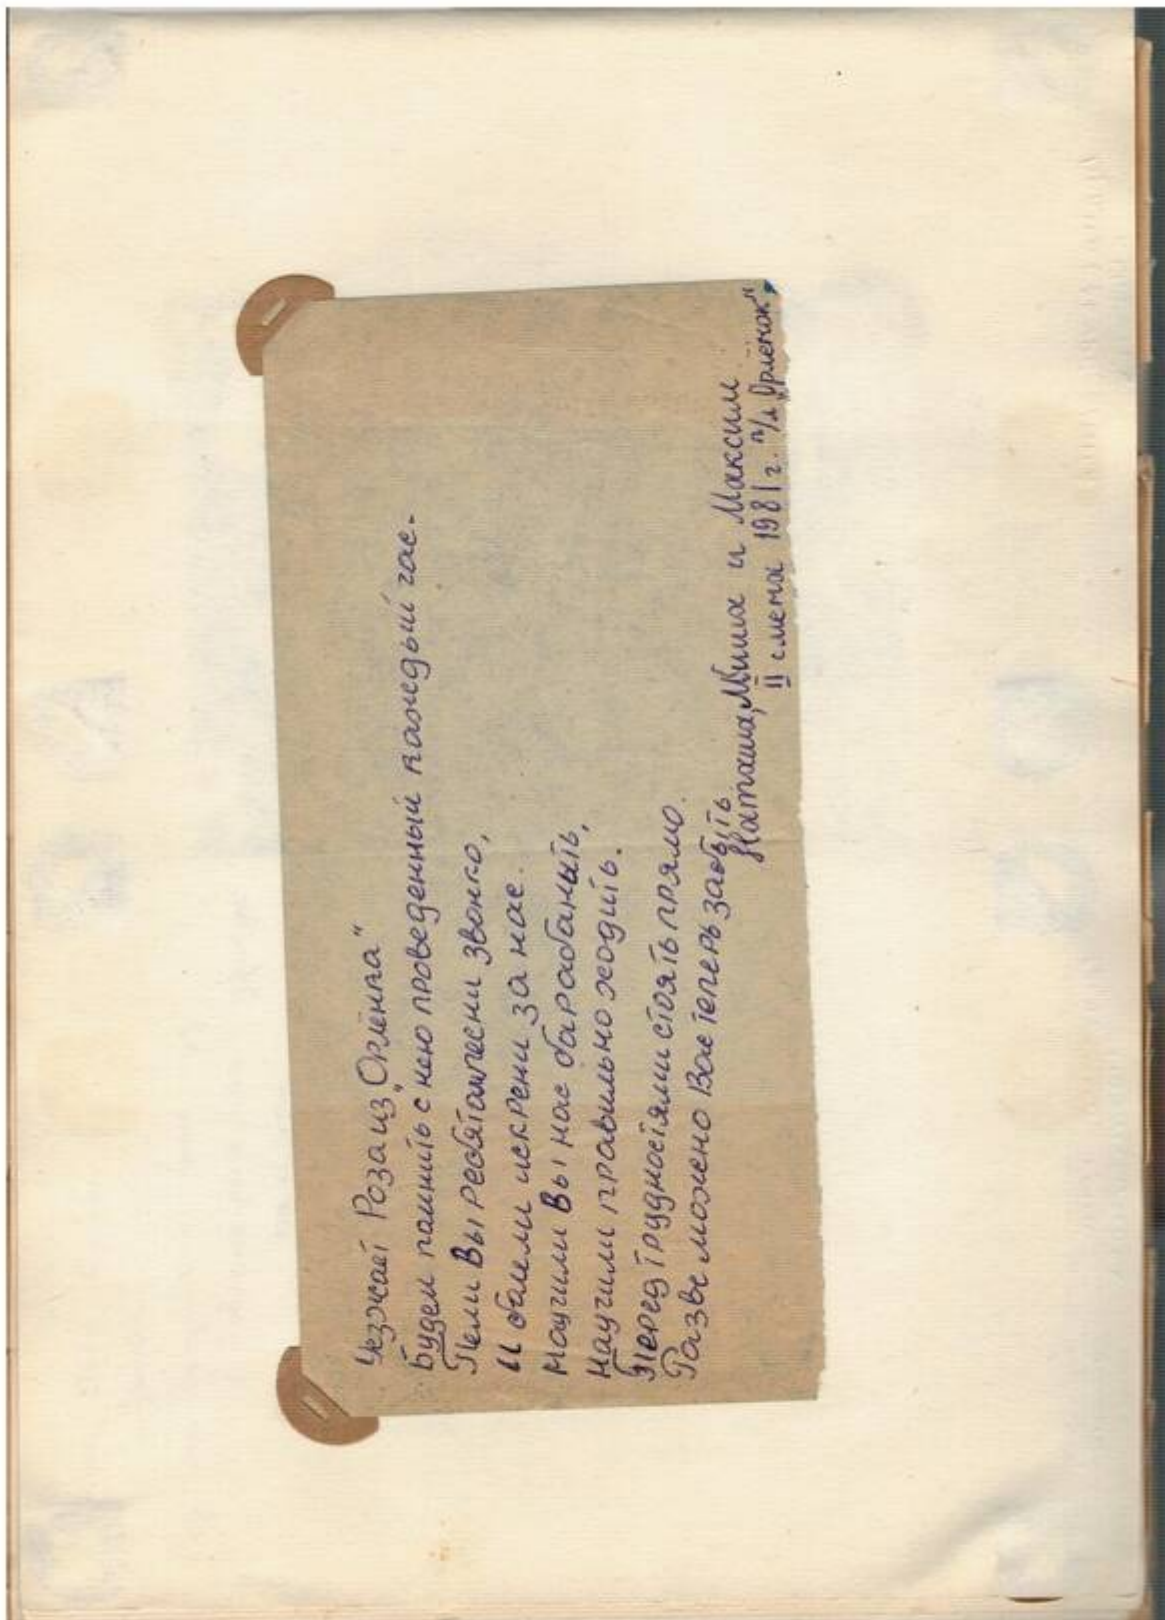 Уезжает Роза из „Орлёнка"
Будем помнить с нею проведенный каждый час.
Пели Вы ребятам песни звонко,
И болели искрени за нас.
Научили Вы нас барабанить,
Научили правильно ходить.
Перед трудностями стоять прямо.
Разве можно Вас теперь забыть
Наташа, Миша и Максим
II смена 1981 г. п/л „Орлёнок"